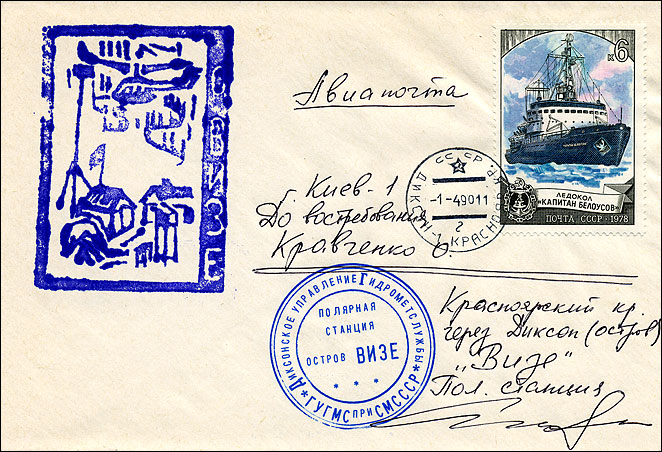 О. ВИЗЕ
Авиапочта
к6
ЛЕДОКОЛ
«КАПИТАН БЕЛОУСОВ»
ПОЧТА СССР · 1978
СССР
-1-49011
2
г. Киев-1
До востребования
Кравченко О.
ДИКСОНСКОЕ УПРАВЛЕНИЕ ГИДРОМЕТСЛУЖБЫ
*ГУГМС ПРИ СМ СССР*
ПОЛЯРНАЯ
СТАНЦИЯ
ОСТРОВ ВИЗЕ
* * *
Красноярский кр.
через Диксон (остров)
"Визе"
Пол. станция